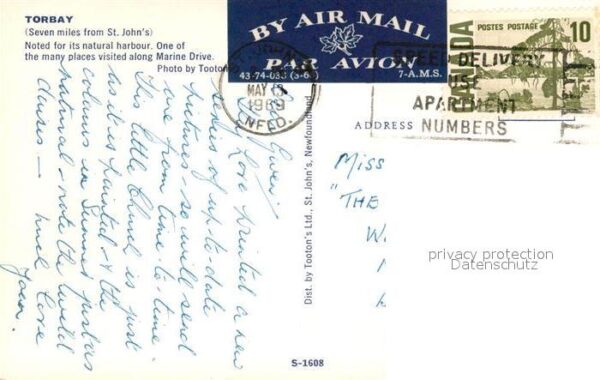 TORBAY
(Seven miles from St. John's)
Noted for its natural harbour. One of
the many places visited along Marine Drive.
Photo by Tooton
BY AIR MAIL
PAR AVION
43-74-035 (3-6
7-A.M.S.
MAY
1969
NFLD.
POSTES POSTAGE
10
CANADA
SPEED DELIVERY
USE
APARTMENT
NUMBERS
ADDRESS
Dist. by Tooton's Ltd., St. John's, Newfoundland
S-1608
Gwen
have printed a new
series of up-to-date
pictures - so will send
one from time to time.
This little Church is just
as it is painted & the
colours in Sunset just as
natural - note the
much love
Miss
"THE
privacy protection
Datenschutz